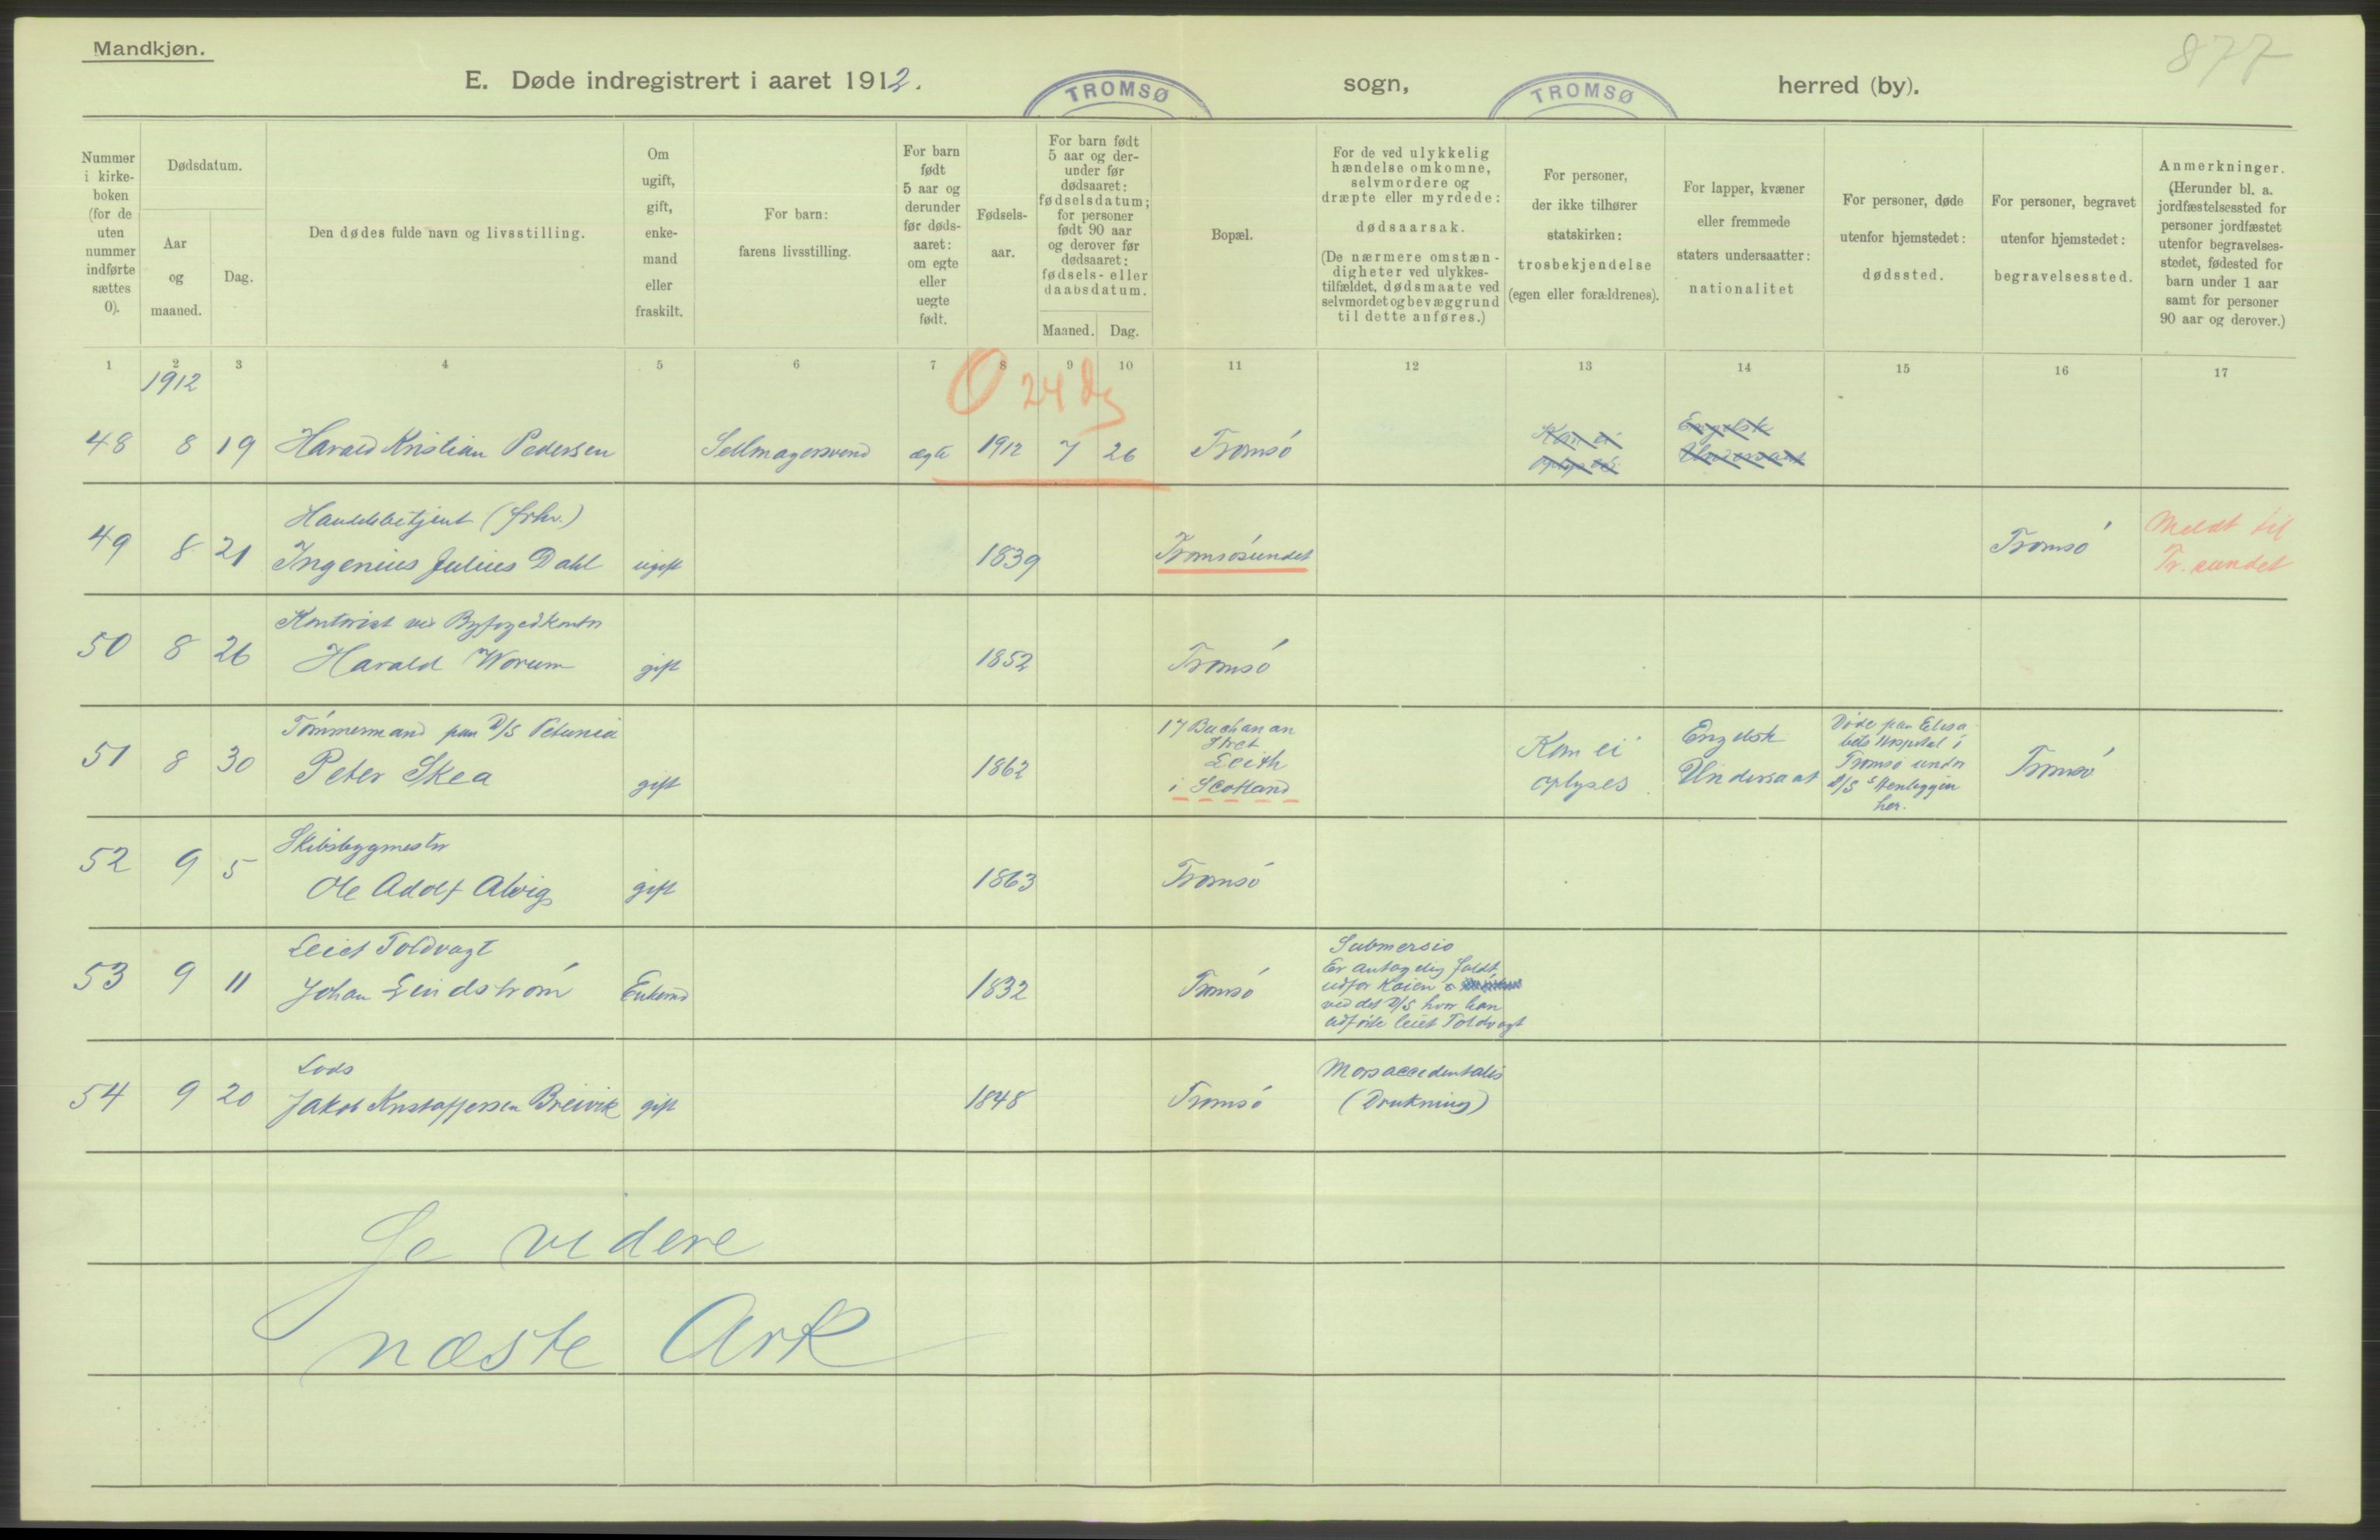 Mandkjøn.
877
E. Døde indregistrert i aaret 1912. TROMSØ sogn, TROMSØ herred (by).
Nummer i kirke-boken (for de uten nummer indførte sættes 0).
Dødsdatum.
Aar og maaned.
Dag.
Den dødes fulde navn og livsstilling.
Om ugift, gift, enke-mand eller fraskilt.
For barn: farens livsstilling.
For barn født 5 aar og derunder før døds-aaret: om egte eller uegte født.
Fødsels-aar.
For barn født 5 aar og der-under før dødsaaret: fødselsdatum; for personer født 90 aar og derover før dødsaaret: fødsels- eller daabsdatum.
Maaned. Dag.
Bopæl.
For de ved ulykkelig hændelse omkomne, selvmordere og dræpte eller myrdede: dødsaarsak. (De nærmere omstæn-digheter ved ulykkes-tilfældet, dødsmaate ved selvmordet og bevæggrund til dette anføres.)
For personer, der ikke tilhører statskirken: trosbekjendelse (egen eller forældrenes).
For lapper, kvæner eller fremmede staters undersaatter: nationalitet
For personer, døde utenfor hjemstedet: dødssted.
For personer, begravet utenfor hjemstedet: begravelsessted.
Anmerkninger. (Herunder bl. a. jordfæstelsessted for personer jordfæstet utenfor begravelses-stedet, fødested for barn under 1 aar samt for personer 90 aar og derover.)
1 2 3 4 5 6 7 8 9 10 11 12 13 14 15 16 17
1912
0 24 dg
48 8 19 Harald Kristian Pedersen Sellmagersvend ægte 1912 7 26 Tromsó Kan ei oplyses Engelsk Undersaat
Handelsbetjent (frhv.)
49 8 21 Ingenius Julius Dahl ugift 1839 Tromsósundet Tromsó Meldt til Tr.sundet
Kontorist ved Byfogedkontor
50 8 26 Harald Worum gift 1852 Tromsó
Tómmermand paa D/S Petunia
51 8 30 Peter Skea gift 1862 17 Buchanan Stret Leith i Scotland Kan ei oplyses Engelsk Undersaat Døde paa Elisabets Hospital i Tromsó under D/S s Henliggen her. Tromsó
Skibsbygmester
52 9 5 Ole Adolf Alvig gift 1863 Tromsó
Leiet Toldvagt
53 9 11 Johan Lindstróm Enkemd 1832 Tromsó Submersio Er antagelig faldt udfor Kaien ved det D/S hvor han udførte leiet Toldvagt
Lods
54 9 20 Jakob Kristoffersen Breivik gift 1848 Tromsó Mors accedentalis (Drukning)
Se videre
næste Ark